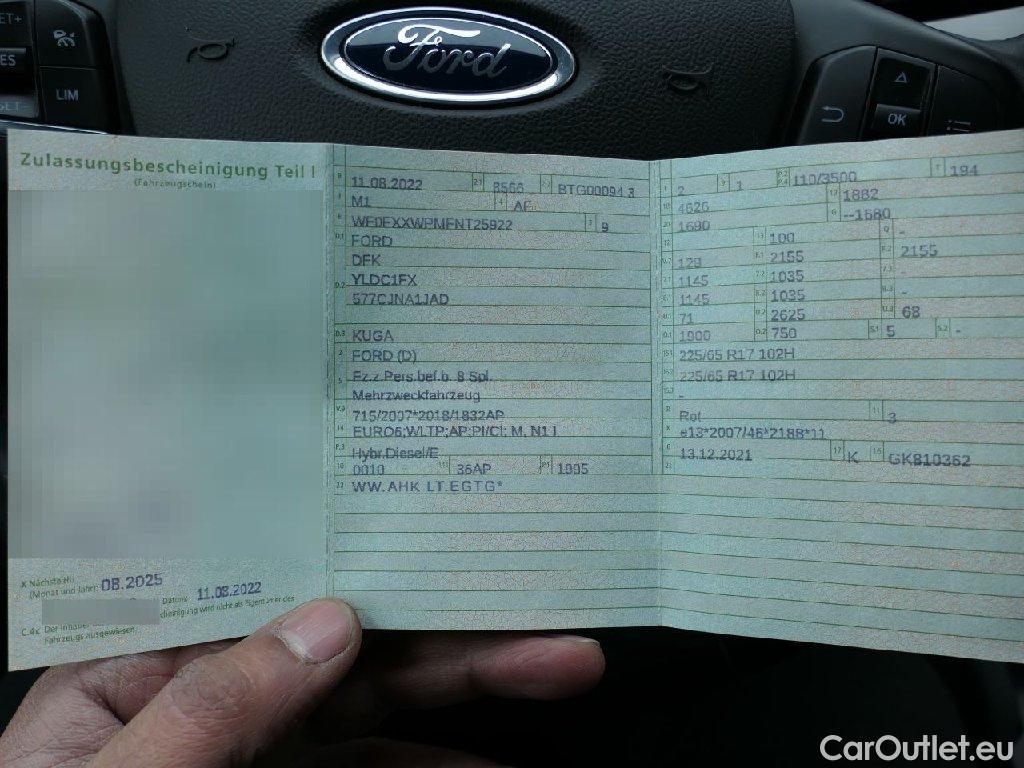 LIM
Ford
OK
Zulassungsbescheinigung Teil I
(Fahrzeugschein)
11.08.2022 8566 BTG00094 3
M1 AF
9
FORD
DFK
YLDC1FX
KUGA
FORD (D)
Fz.z.Pers.bef.b. 8 Spl.
Mehrzweckfahrzeug
715/2007*2018/1832AP
EURO6;WLTP;AP;PI/CI; M, N1 I
Hybr.Diesel/E
0010 36AP 1995
WW.AHK LT.EGTG*
2 1 110/3500 194
4626 1882
1690 --1680
100 -
128 2155 2155
1145 1035 -
1145 1035 -
71 2625 68
1900 750 5 -
225/65 R17 102H
225/65 R17 102H
-
Rot 3
e13*2007/46*2188*11
13.12.2021 K GK810362
X Nächste HU
(Monat und Jahr) 08.2025
Datum: 11.08.2022
C.4c Der Inhaber der
wird nicht als Eigentümer des
Fahrzeugs ausgewiesen.
CarOutlet.eu